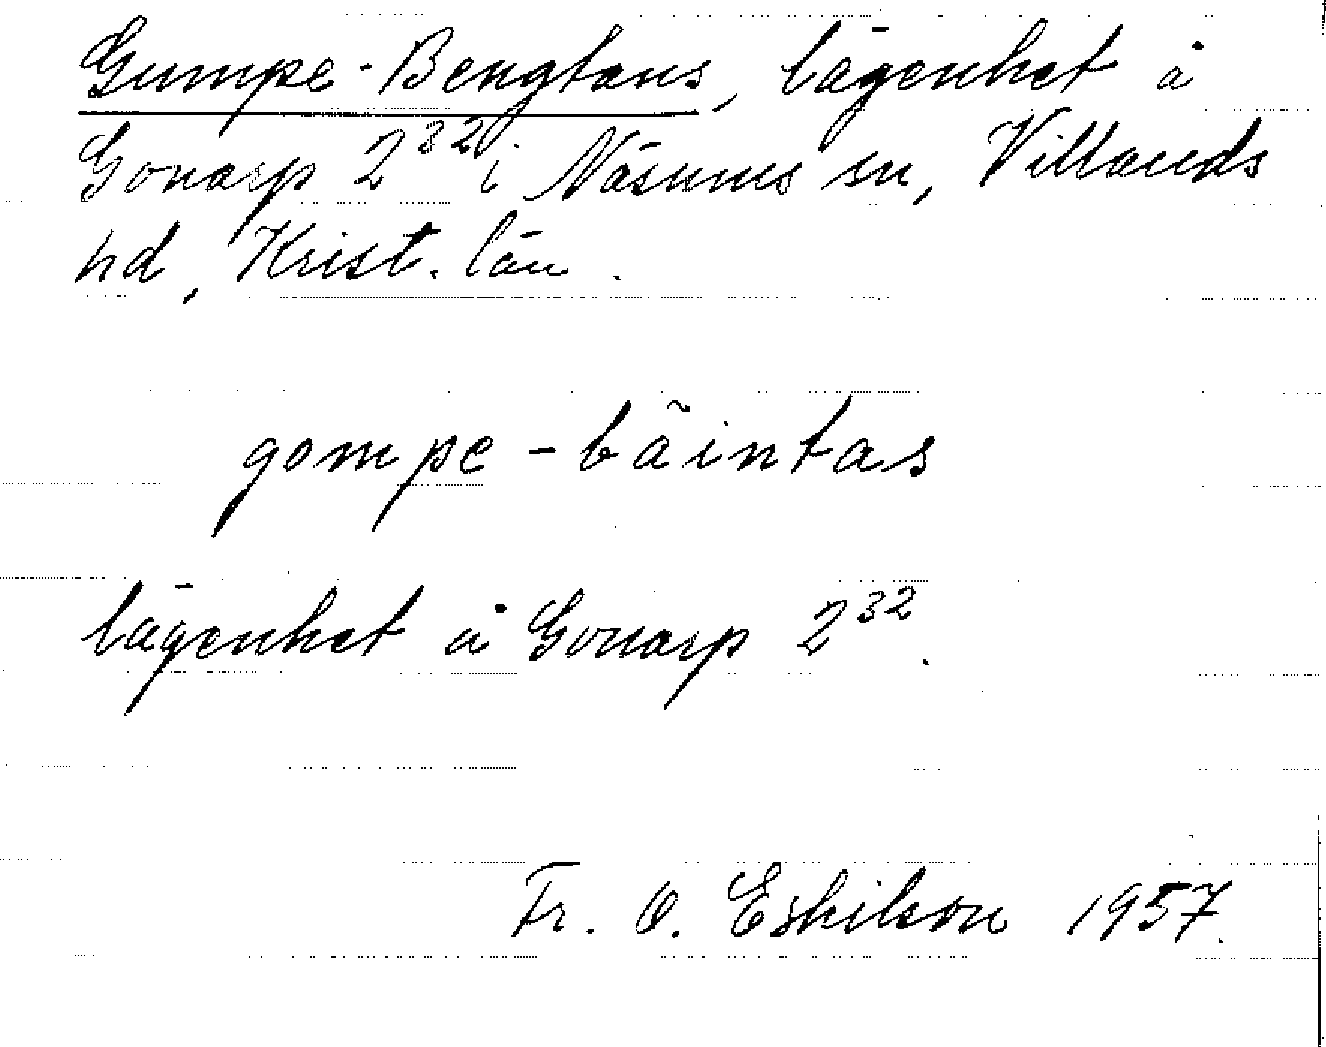 Gumpe-Bengtans, lägenhet å
Gonarp 2³² i Näsums sn, Villands
hd, Krist. län.
gompe-bãintas
lägenhet å Gonarp 2³².
Fr. O. Eskilson 1957.